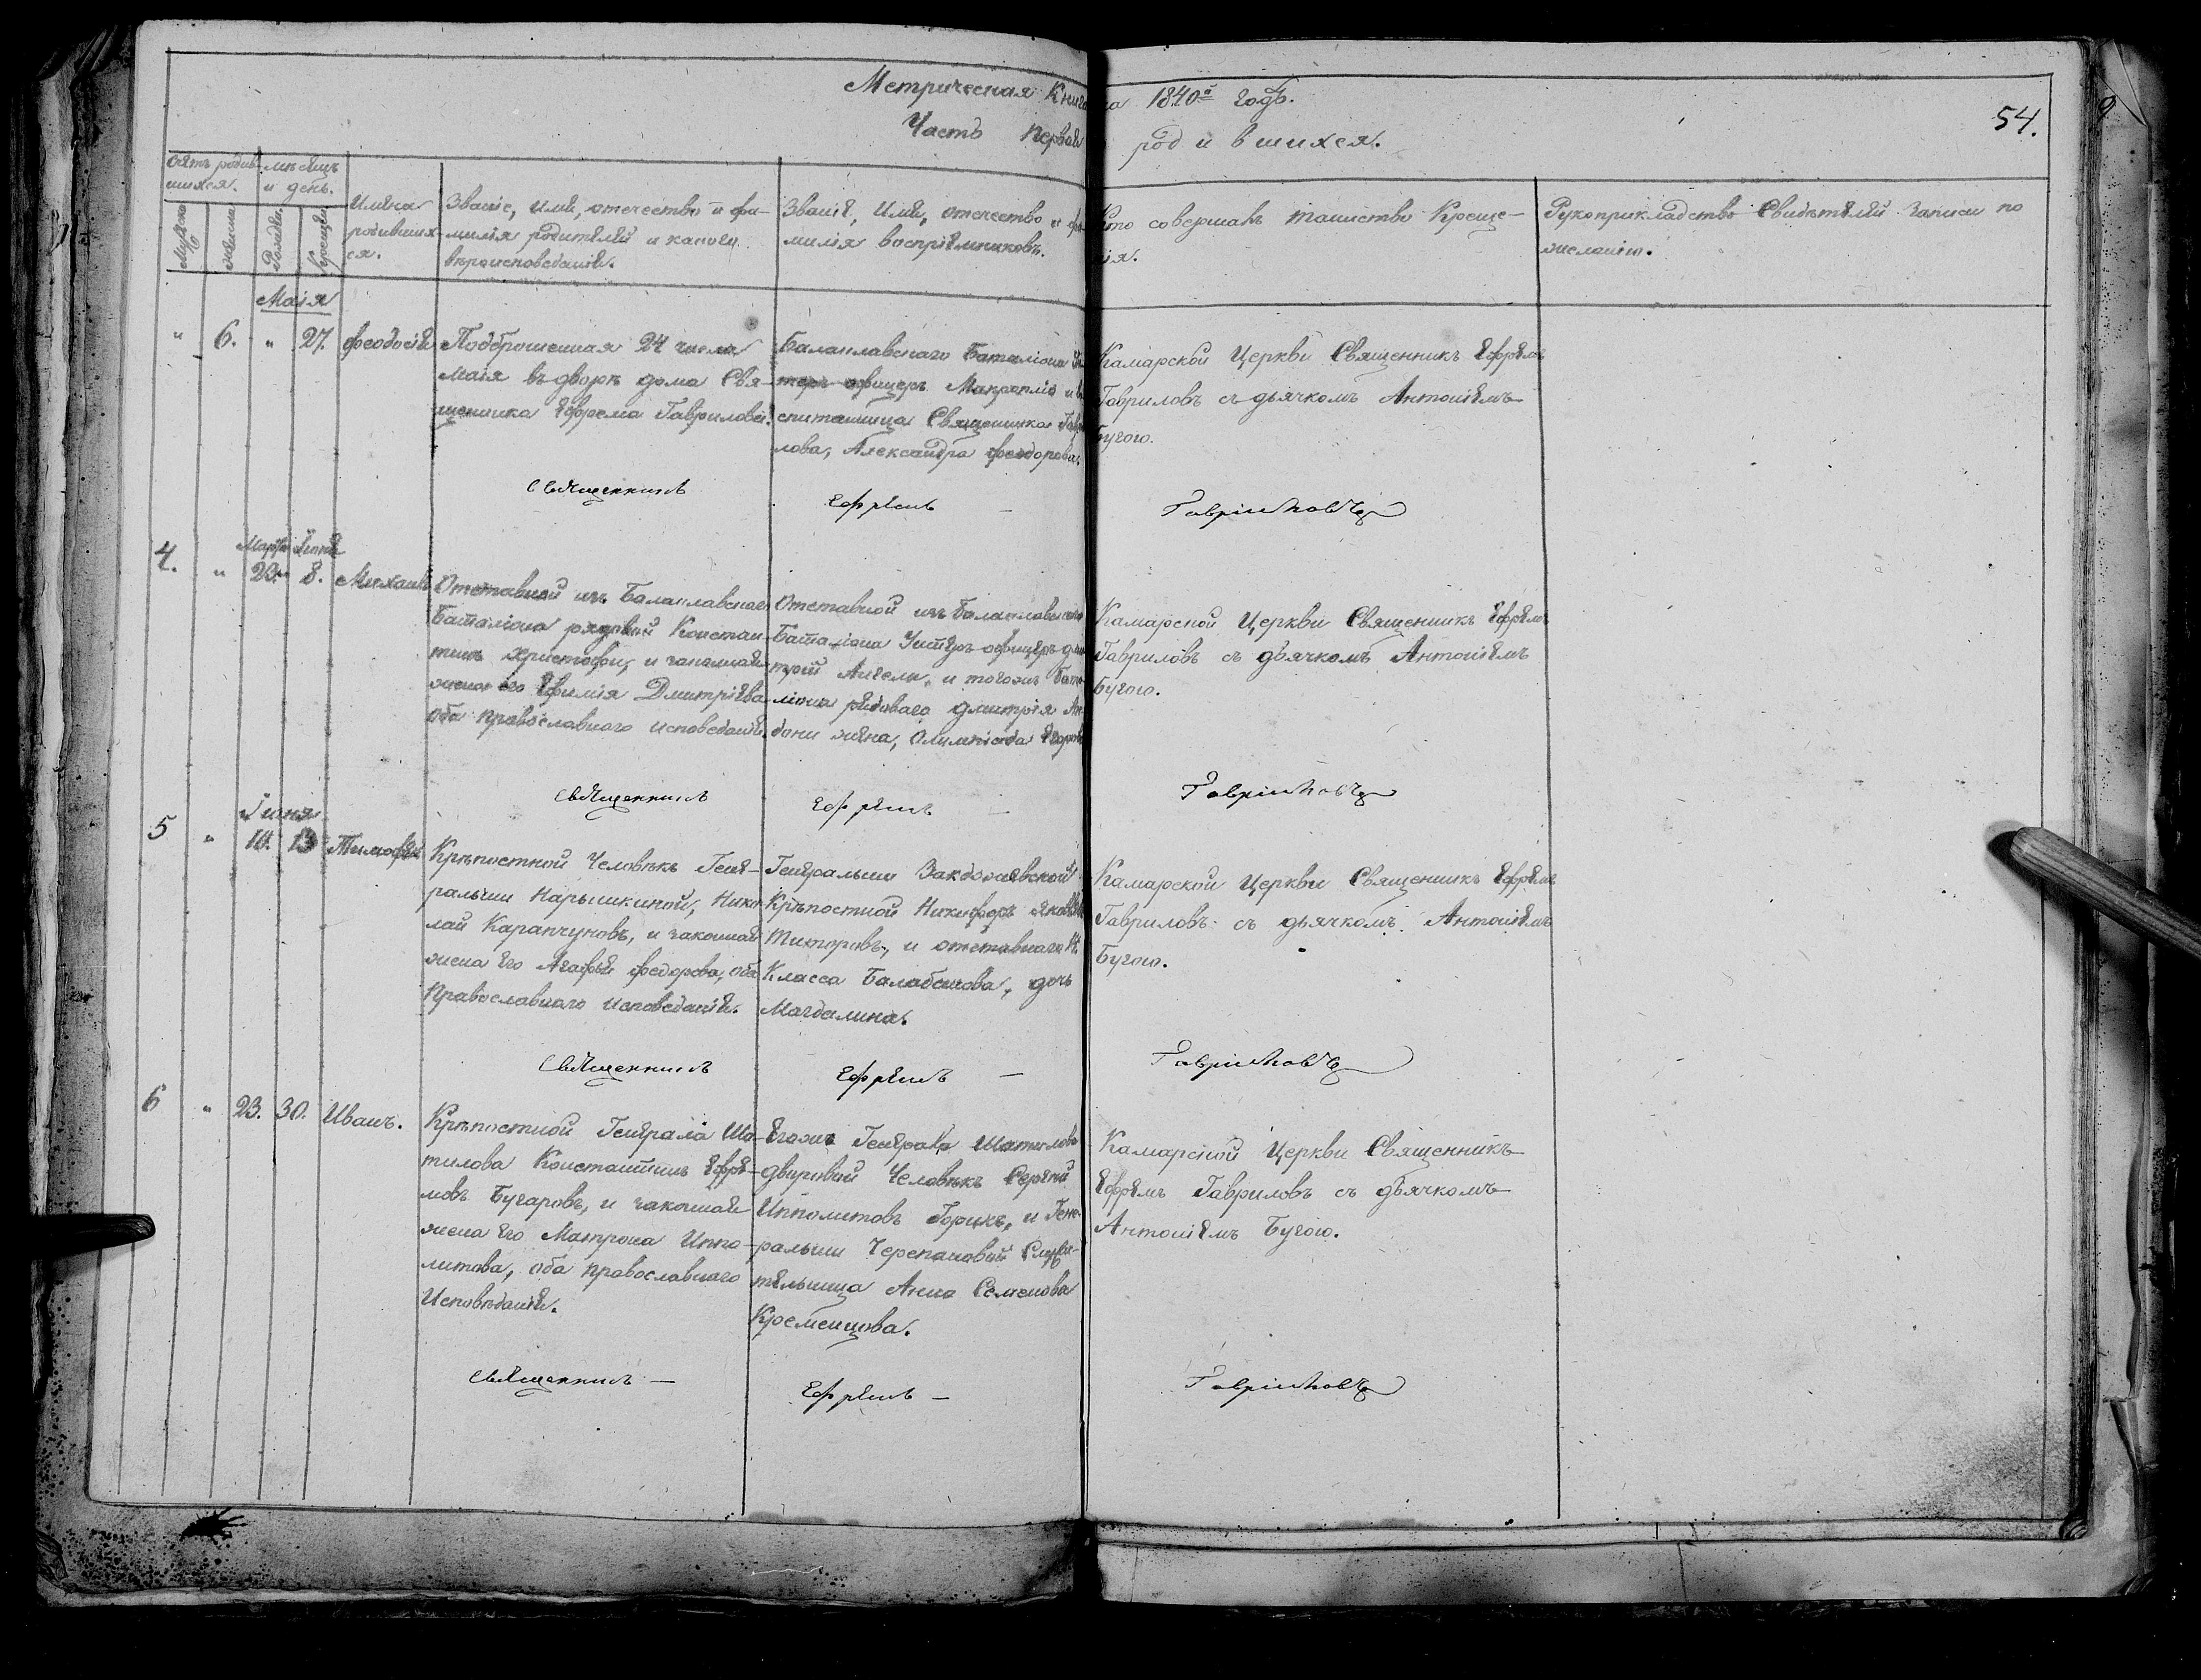 Метрическая Книга на 1840й годъ.
Часть Первая родившихся.
54.
Счетъ родив-
шихся.
Мужеска
женска
мѣсяцъ
и день.
Рожден.
Крещен.
Имена
родивших-
ся.
Званіе, имя, отечество и фа-
милія родителей и какого
вѣроисповеданія.
Званіе, имя, отечество и фа-
милія воспріемниковъ.
Кто совершалъ таинство Креще-
нія.
Рукоприкладство Свидѣтелей записи по
желанію.
Маія
" 6. " 27. Феодосія
Подброшенная 24 числа
маія въ дворѣ дома Свя-
щенника Ефрема Гаврилова.
Балаклавскаго Баталіона Ун-
теръ-офицеръ
спитанница Священника Гаври
лова, Александра Феодорова.
Камарской Церкви Священникъ Ефремъ
Гавриловъ съ дьячкомъ Антоніемъ
Бугою.
Священникъ Ефремъ — Гавриловъ
Марта Іюня
4. " 23. 8. Михаилъ
Отставной изъ Балаклавскаго
Баталіона рядовой Констан
тинъ Христофи, и законная
жена его Ефимія Дмитріева
оба православнаго исповеданія.
Отставной изъ Балаклавскаго
Баталіона Унтеръ-офицеръ Дми
трій Ангели, и тогожъ Бата-
ліона рядоваго Дмитрія Ан-
дони жена, Олимпіада Егорова
Камарской Церкви Священникъ Ефремъ
Гавриловъ съ дьячкомъ Антоніемъ
Бугою.
Священникъ Ефремъ — Гавриловъ
Іюня
5 " 10. 13 Тимофей
Крѣпостной Человѣкъ Гене-
ральши Нарышкиной, Нико
лай Карапчуновъ, и законная
жена его Агафья Федорова, оба
Православнаго исповеданія.
Генеральши
Крѣпостной Никифоръ
и отставнаго 14.
Класса Балабанова, дочь
Магдалина.
Камарской Церкви Священникъ Ефремъ
Гавриловъ съ дьячкомъ Антоніемъ
Бугою.
Священникъ Ефремъ — Гавриловъ
6 " 23. 30. Иванъ.
Крѣпостной Генерала Ша-
тилова Константинъ Ефре-
мовъ Бугаровъ, и законная
жена его Матрона Иппо-
литова, оба православнаго
Исповѣданія.
Егожъ Генерала Шатилова
дворовый Человѣкъ Сергѣй
Ипполитовъ Горикъ, и Гене-
ральши Черепановой Служи-
тельница Анна Семенова
Кременцова.
Камарской Церкви Священникъ
Ефремъ Гавриловъ съ дьячкомъ
Антоніемъ Бугою.
Священникъ — Ефремъ — Гавриловъ